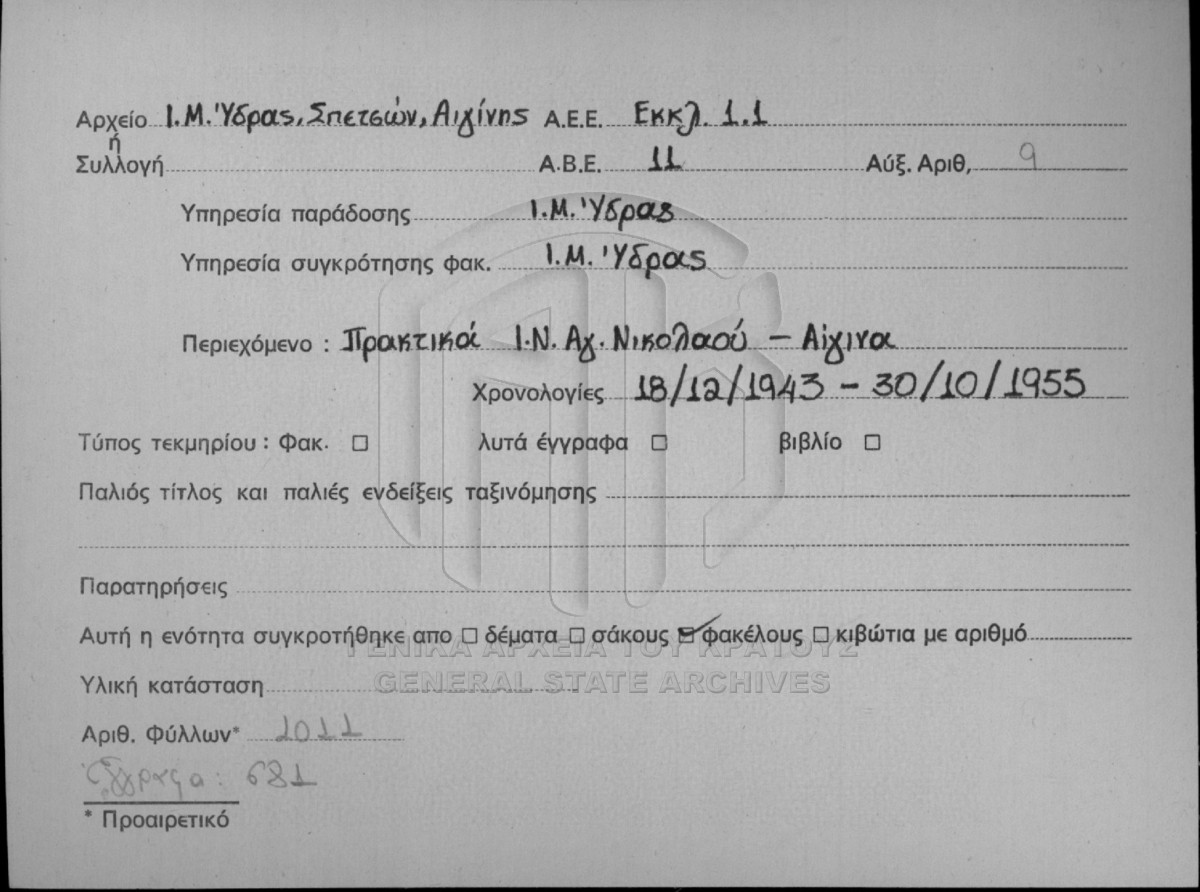 Αρχείο Ι.Μ. Ύδρας, Σπετσών, Αιγίνης Α.Ε.Ε. Εκκλ. 1.1
ή
Συλλογή Α.Β.Ε. 11 Αύξ. Αριθ, 9
Υπηρεσία παράδοσης Ι.Μ. Ύδρας
Υπηρεσία συγκρότησης φακ. Ι.Μ. Ύδρας
Περιεχόμενο : Πρακτικά Ι.Ν. Αγ. Νικολαού – Αίγινα
Χρονολογίες 18/12/1943 – 30/10/1955
Τύπος τεκμηρίου : Φακ. □ λυτά έγγραφα □ βιβλίο □
Παλιός τίτλος και παλιές ενδείξεις ταξινόμησης
Παρατηρήσεις
Αυτή η ενότητα συγκροτήθηκε απο □ δέματα □ σάκους ☑ φακέλους □ κιβώτια με αριθμό
ΓΕΝΙΚΑ ΑΡΧΕΙΑ ΤΟΥ ΚΡΑΤΟΥΣ
Υλική κατάσταση
GENERAL STATE ARCHIVES
Αριθ. Φύλλων* 1011
Έγγραφα : 681
* Προαιρετικό